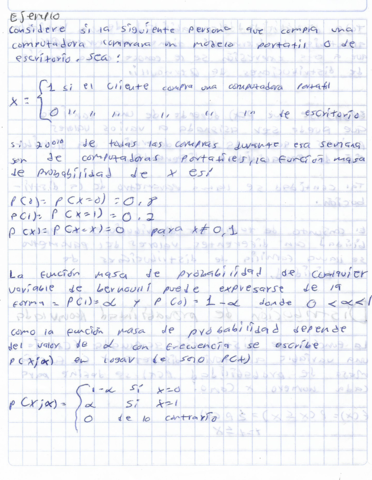 Ejemplo
Considere si la siguiente persona que compra una
computadora comprara un modelo portatil o de
escritorio. Sea:
X = { 1 si el cliente compra una computadora portatil
0 " " " " " " de escritorio
si 20% de todas las compras durante esa semana
son de computadoras portatiles, la función masa
de probabilidad de x es:
P(0) = P(X=0) = 0,8
P(1) = P(X=1) = 0,2
P(X) = P(X=x) = 0 para X≠0,1
La función masa de probabilidad de cualquier
variable de bernoulli puede expresarse de la
forma = P(1)=α y P(0)=1-α donde 0<α<1
como la función masa de probabilidad depende
del valor de α con frecuencia se escribe
P(X;α) en lugar de solo P(X)
P(X;α) = { 1-α si x=0
α si x=1
0 de lo contrario